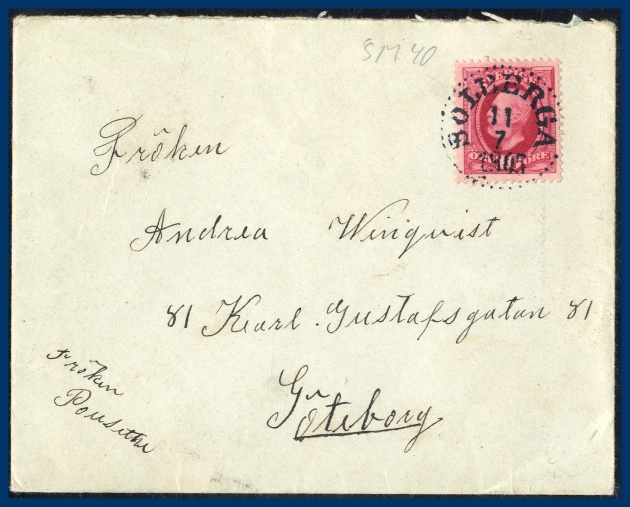 SM 40
SOLBERGA
11
7
1905
ÖRE
Fröken
Andrea Winqvist
81 Karl Gustafsgatan 81
Göteborg
Fröken
Pousette